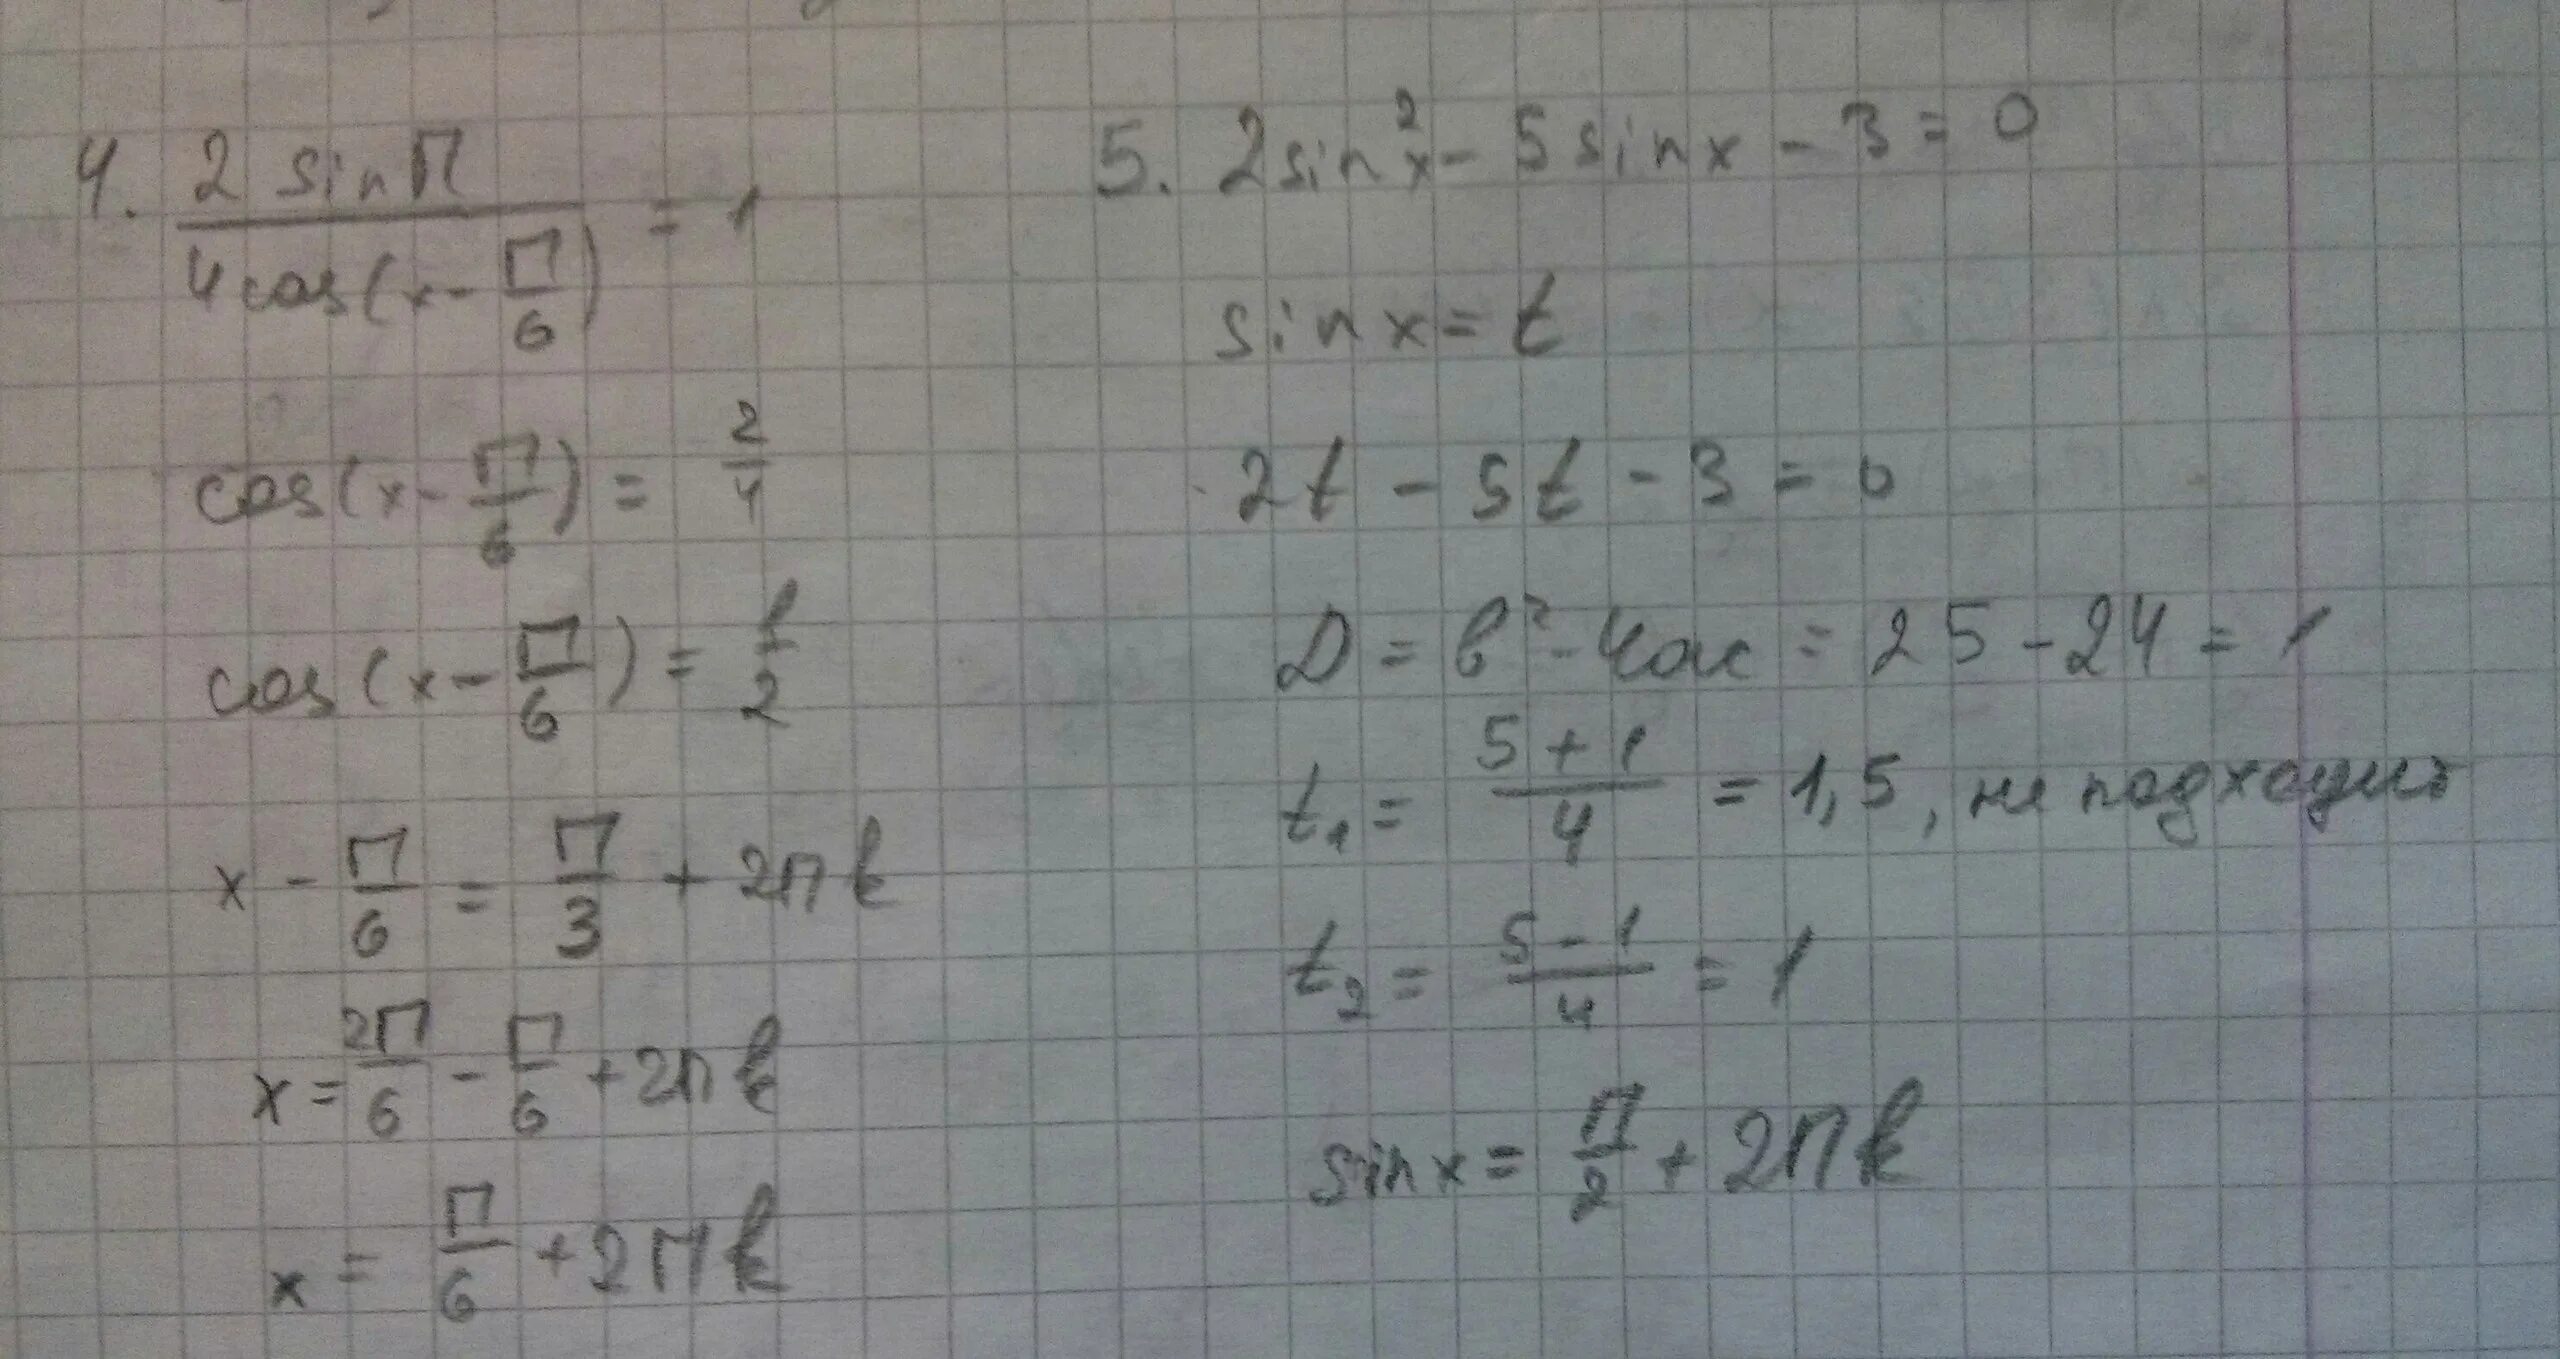 4. 2 sin П / 4cos(x - П/6) = 1
cos(x - П/6) = 2/4
cos(x - П/6) = 1/2
x - П/6 = П/3 + 2Пk
x = 2П/6 - П/6 + 2Пk
x = П/6 + 2Пk
5. 2sin²x - 5sinx - 3 = 0
sinx = t
2t - 5t - 3 = 0
D = b² - 4ac = 25 - 24 = 1
t₁ = 5 + 1 / 4 = 1,5, не подходит
t₂ = 5 - 1 / 4 = 1
sinx = П/2 + 2Пk